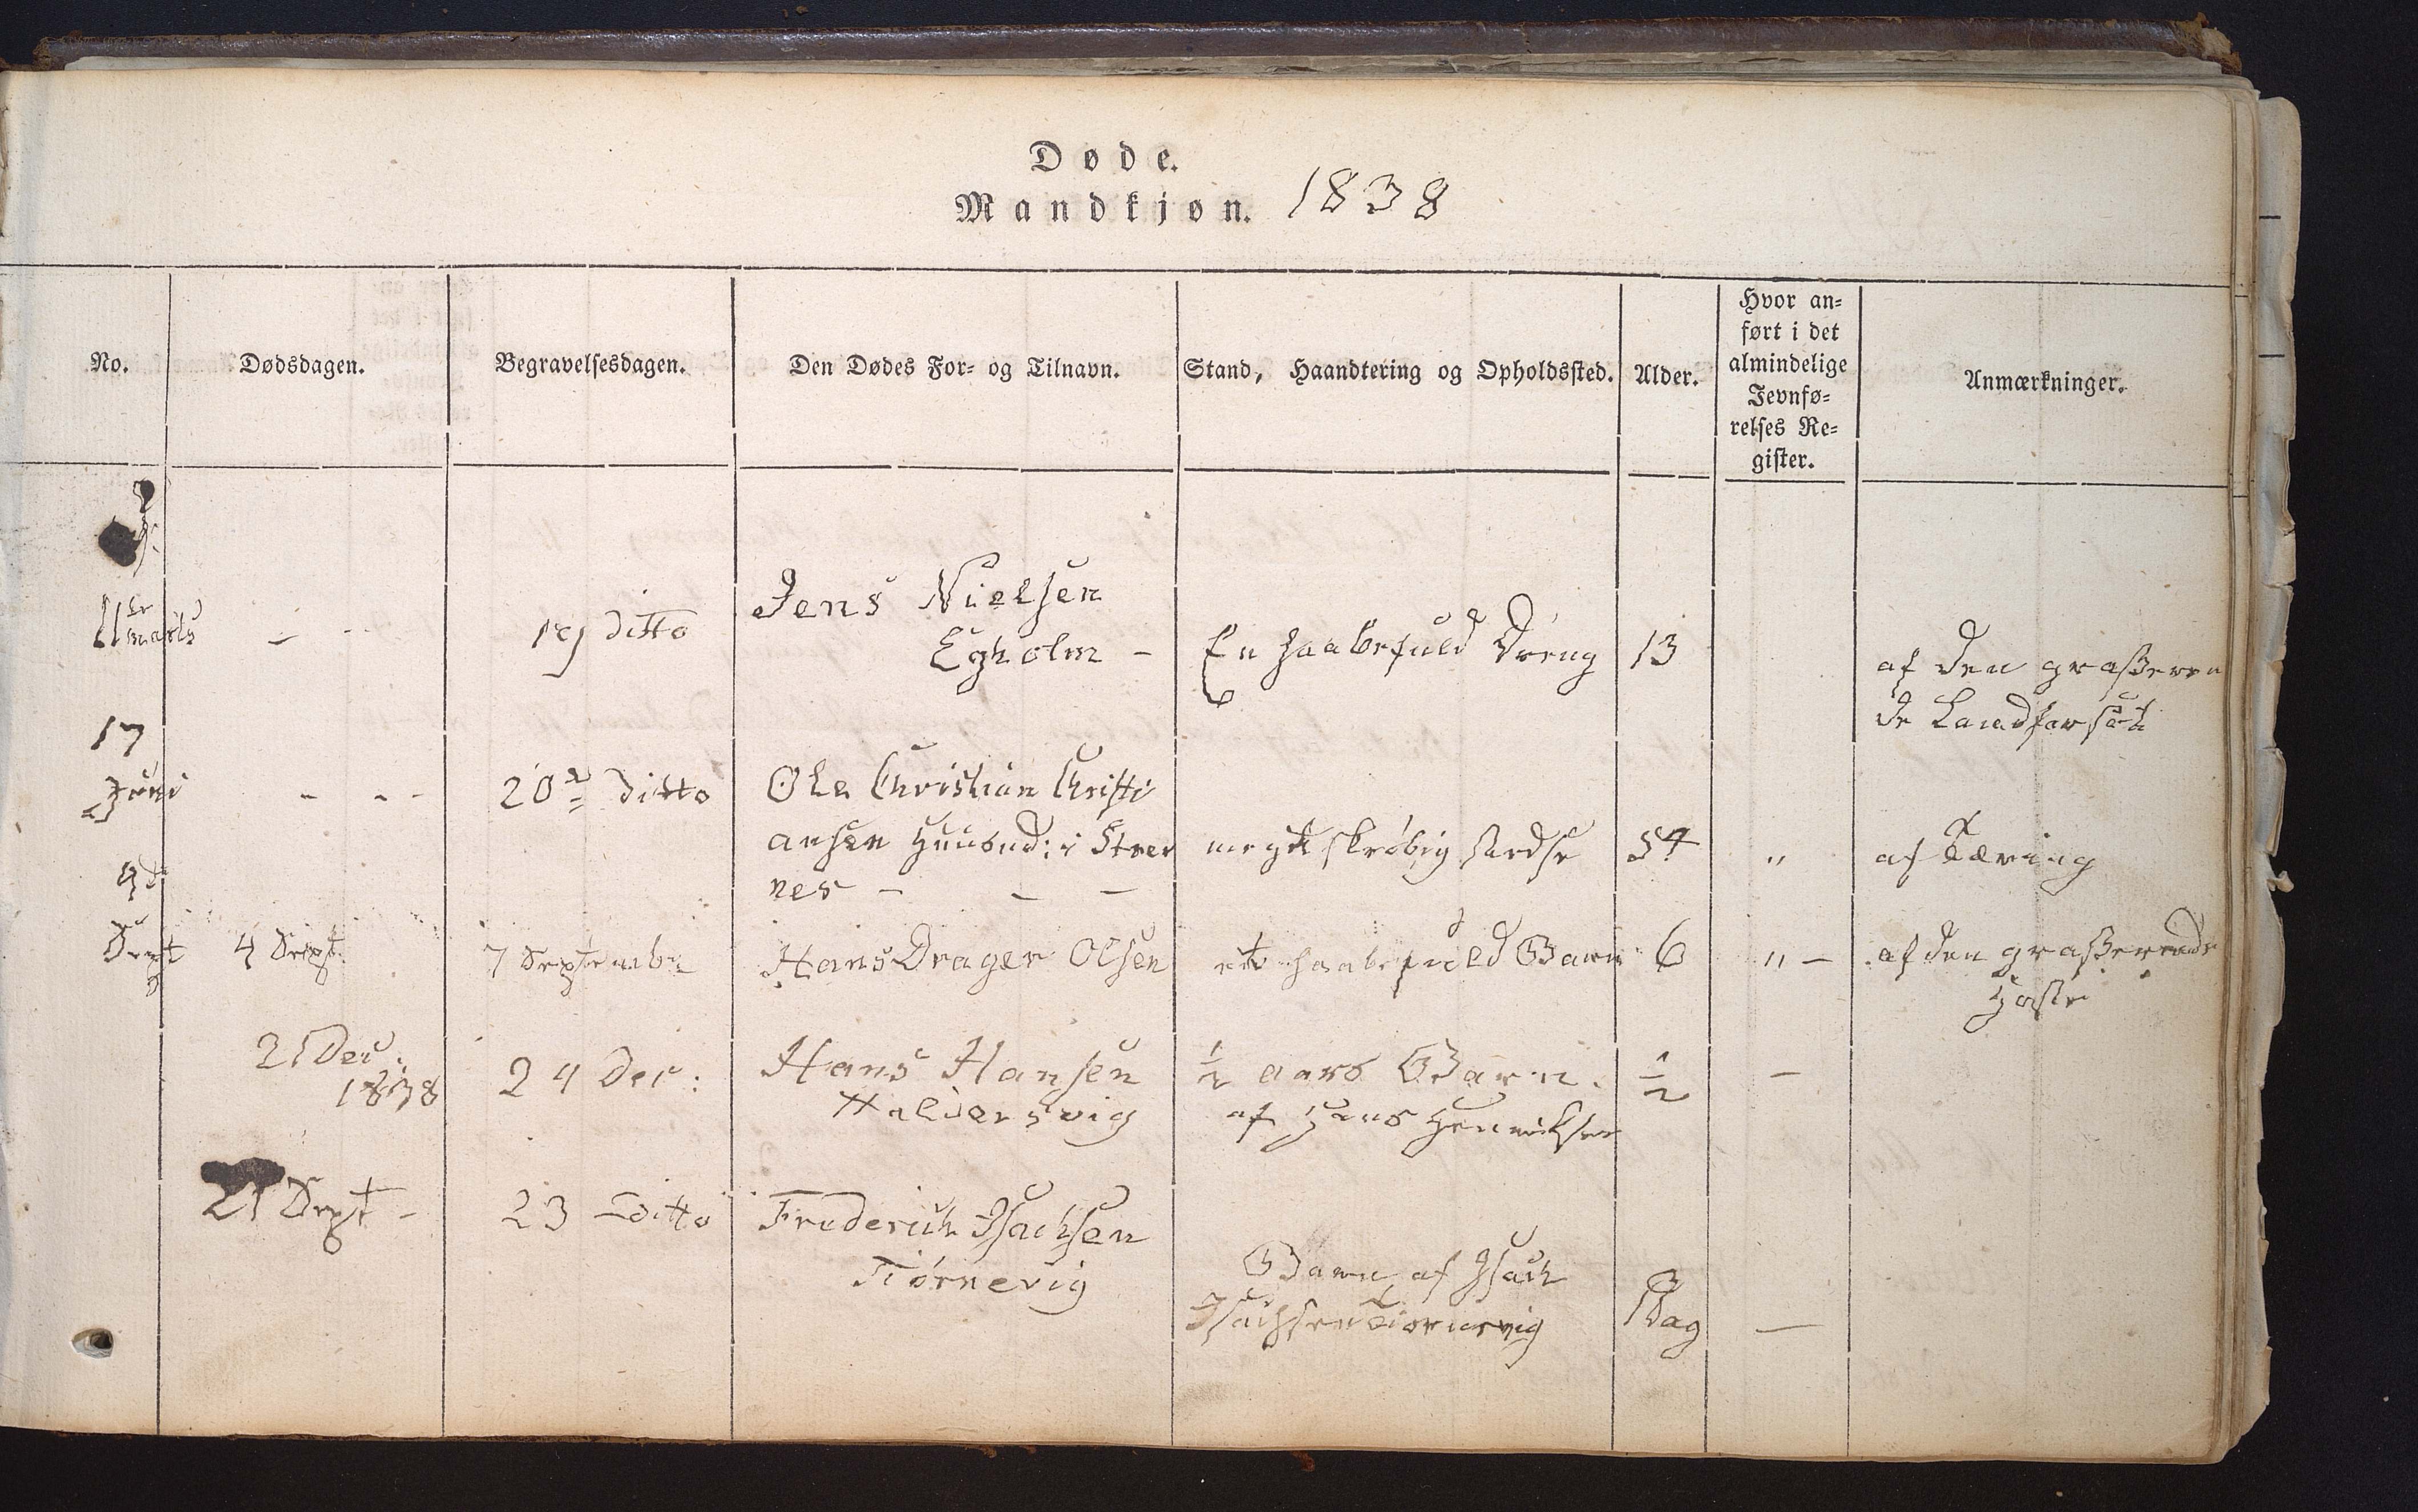 Døde.
Mandkjøn. 1838
No.
Dødsdagen.
Begravelsesdagen.
Den Dødes For- og Tilnavn.
Stand, Haandtering og Opholdssted.
Alder.
Hvor an-
ført i det
almindelige
Jevnfø-
relses Re-
gister.
Anmærkninger.
11te
marts
19 Ditto
Jens Nielsen
Egholm -
En haabefuld Dreng
13
af den grasseren
de Landfarsot
17
Juni
20de Ditto
Ole Christian Christi
ansen Huusmd: i Strer
nes -
meget skrøbig
54
"
af Tæring
4de
Sept
4 Sept:
7 September
Hans Drager Olsen
et haabefuld Barn
6
" -
af den grasserende
Hoste
21 Dec:
1838
24 Dec:
Hans Hansen
Haldersvig
1/2 aars Barn
af Hans Henriksen
1/2
-
21 Sept -
23 Ditto
Frederich Isachsen
Tiørnevig
Barn af Isach
Isachsen Tiørnevig
1 Dag
-